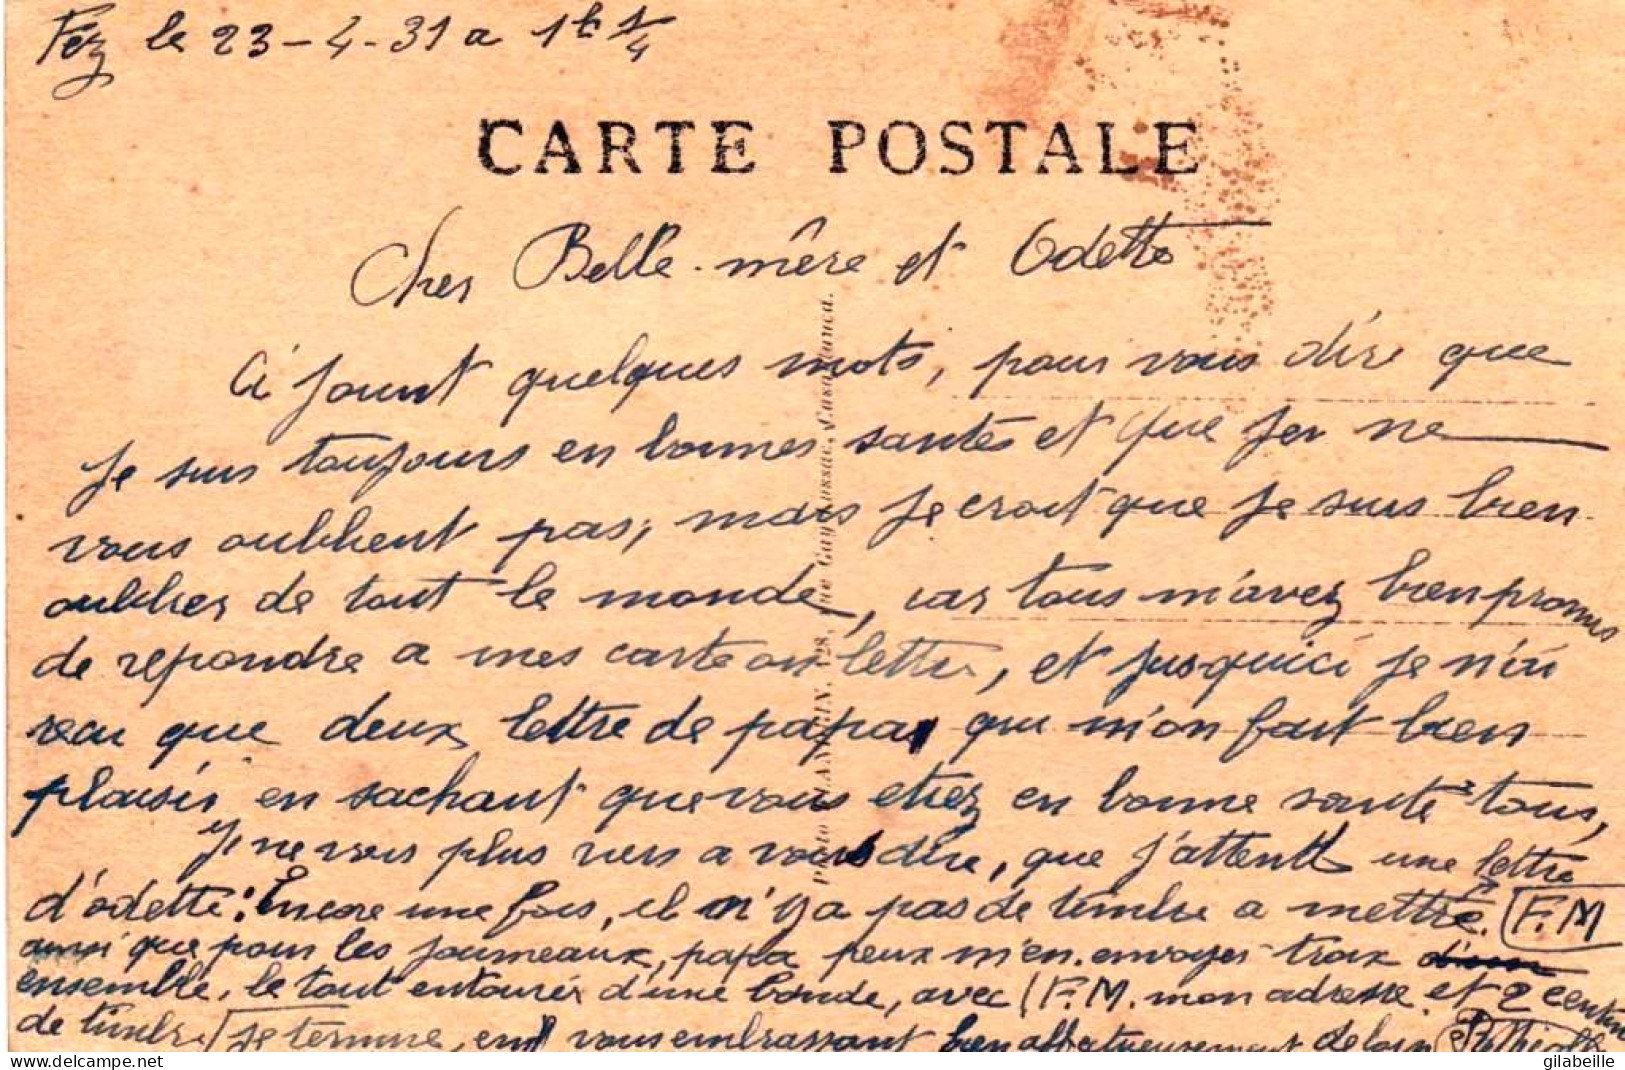 Fez le 23-4-31 a 1h 1/4
CARTE POSTALE
Cher Belle-mère et Odette
Ci Jount quelques mots, pour vous dire que
Je suis toujours en bonnes santés et que Jer ne
vous oublient pas, mais Je croit que Je suis bien
oublier de tout le monde, car tous m'avez bien promis
de repondre a mes carte ou lettre, et Jusqu'ici Je n'ai
recu que deux lettre de papa, qui m'on fait bien
plaisir en sachant que vous etiez en bonne santé tous,
Je ne vois plus rien a vous dire, que J'attent une lettre
d'odette: Encore une fois, il n'y a pas de timbre a mettre. F.M
ainsi que pour les journeaux, papa peux m'en envoyer trois d'un
ensemble, le tout entourer d'une bande, avec (F.M. mon adresse et 2 centime
de timbre Je termine, en vous embrassant bien affectueusement de loin
Photo, rue Gay-Lussac, Casablanca.
delcampe.net
gilabeille